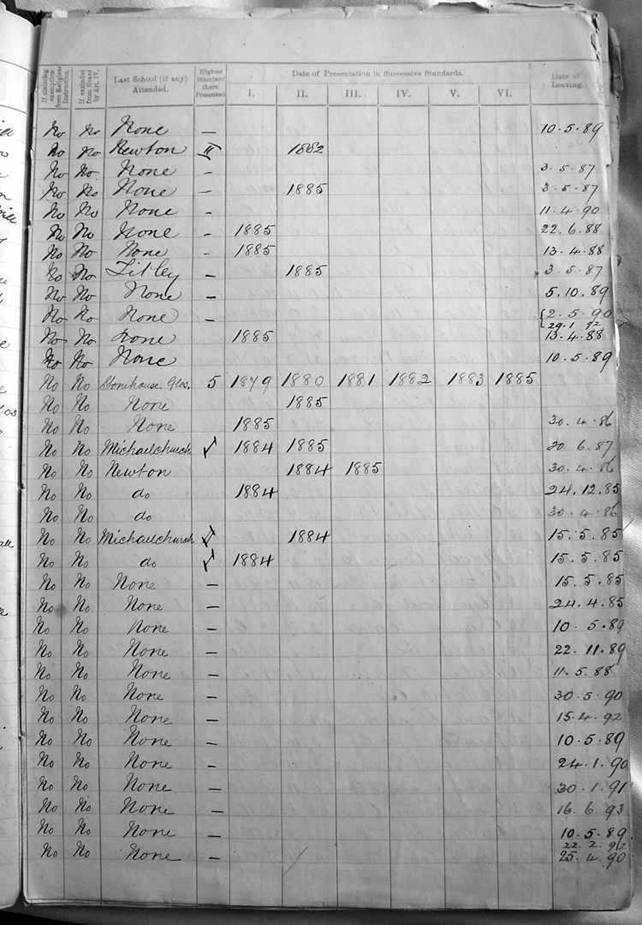 If claiming exemption from Religious Instruction. | If excluded from Grant by Art. 17. | Last School (if any) Attended. | Highest Standard there Presented | Date of Presentation in Successive Standards. | Date of Leaving.
I. II. III. IV. V. VI.
No No None — 10.5.89
No No Newton II 1882
No No None - 3.5.87
No No None - 1885 3.5.87
No No None - 11.4.90
No No None - 1885 22.6.88
No No None - 1885 13.4.88
No No Titley - 1885 3.5.87
No No None — 5.10.89
No No None — 2.5.90
29.1.92
No No None 1885 13.4.88
No No None 10.5.89
No No Stonehouse Glos. 5 1879 1880 1881 1882 1883 1885
No No None 1885
No No None 1885 30.4.86
No No Michaelchurch 1884 1885 20.6.87
No No Newton 1884 1885 30.4.86
No No do 1884 24.12.85
No No do 30.4.86
No No Michaelchurch 1884 15.5.85
No No do 1884 15.5.85
No No None — 15.5.85
No No None — 24.4.85
No No None — 10.5.89
No No None — 22.11.89
No No None — 11.5.88
No No None — 30.5.90
No No None — 15.4.92
No No None — 10.5.89
No No None — 24.1.90
No No None — 30.1.91
No No None — 16.6.93
No No None — 10.5.89
22.2.92
No No None — 25.4.90